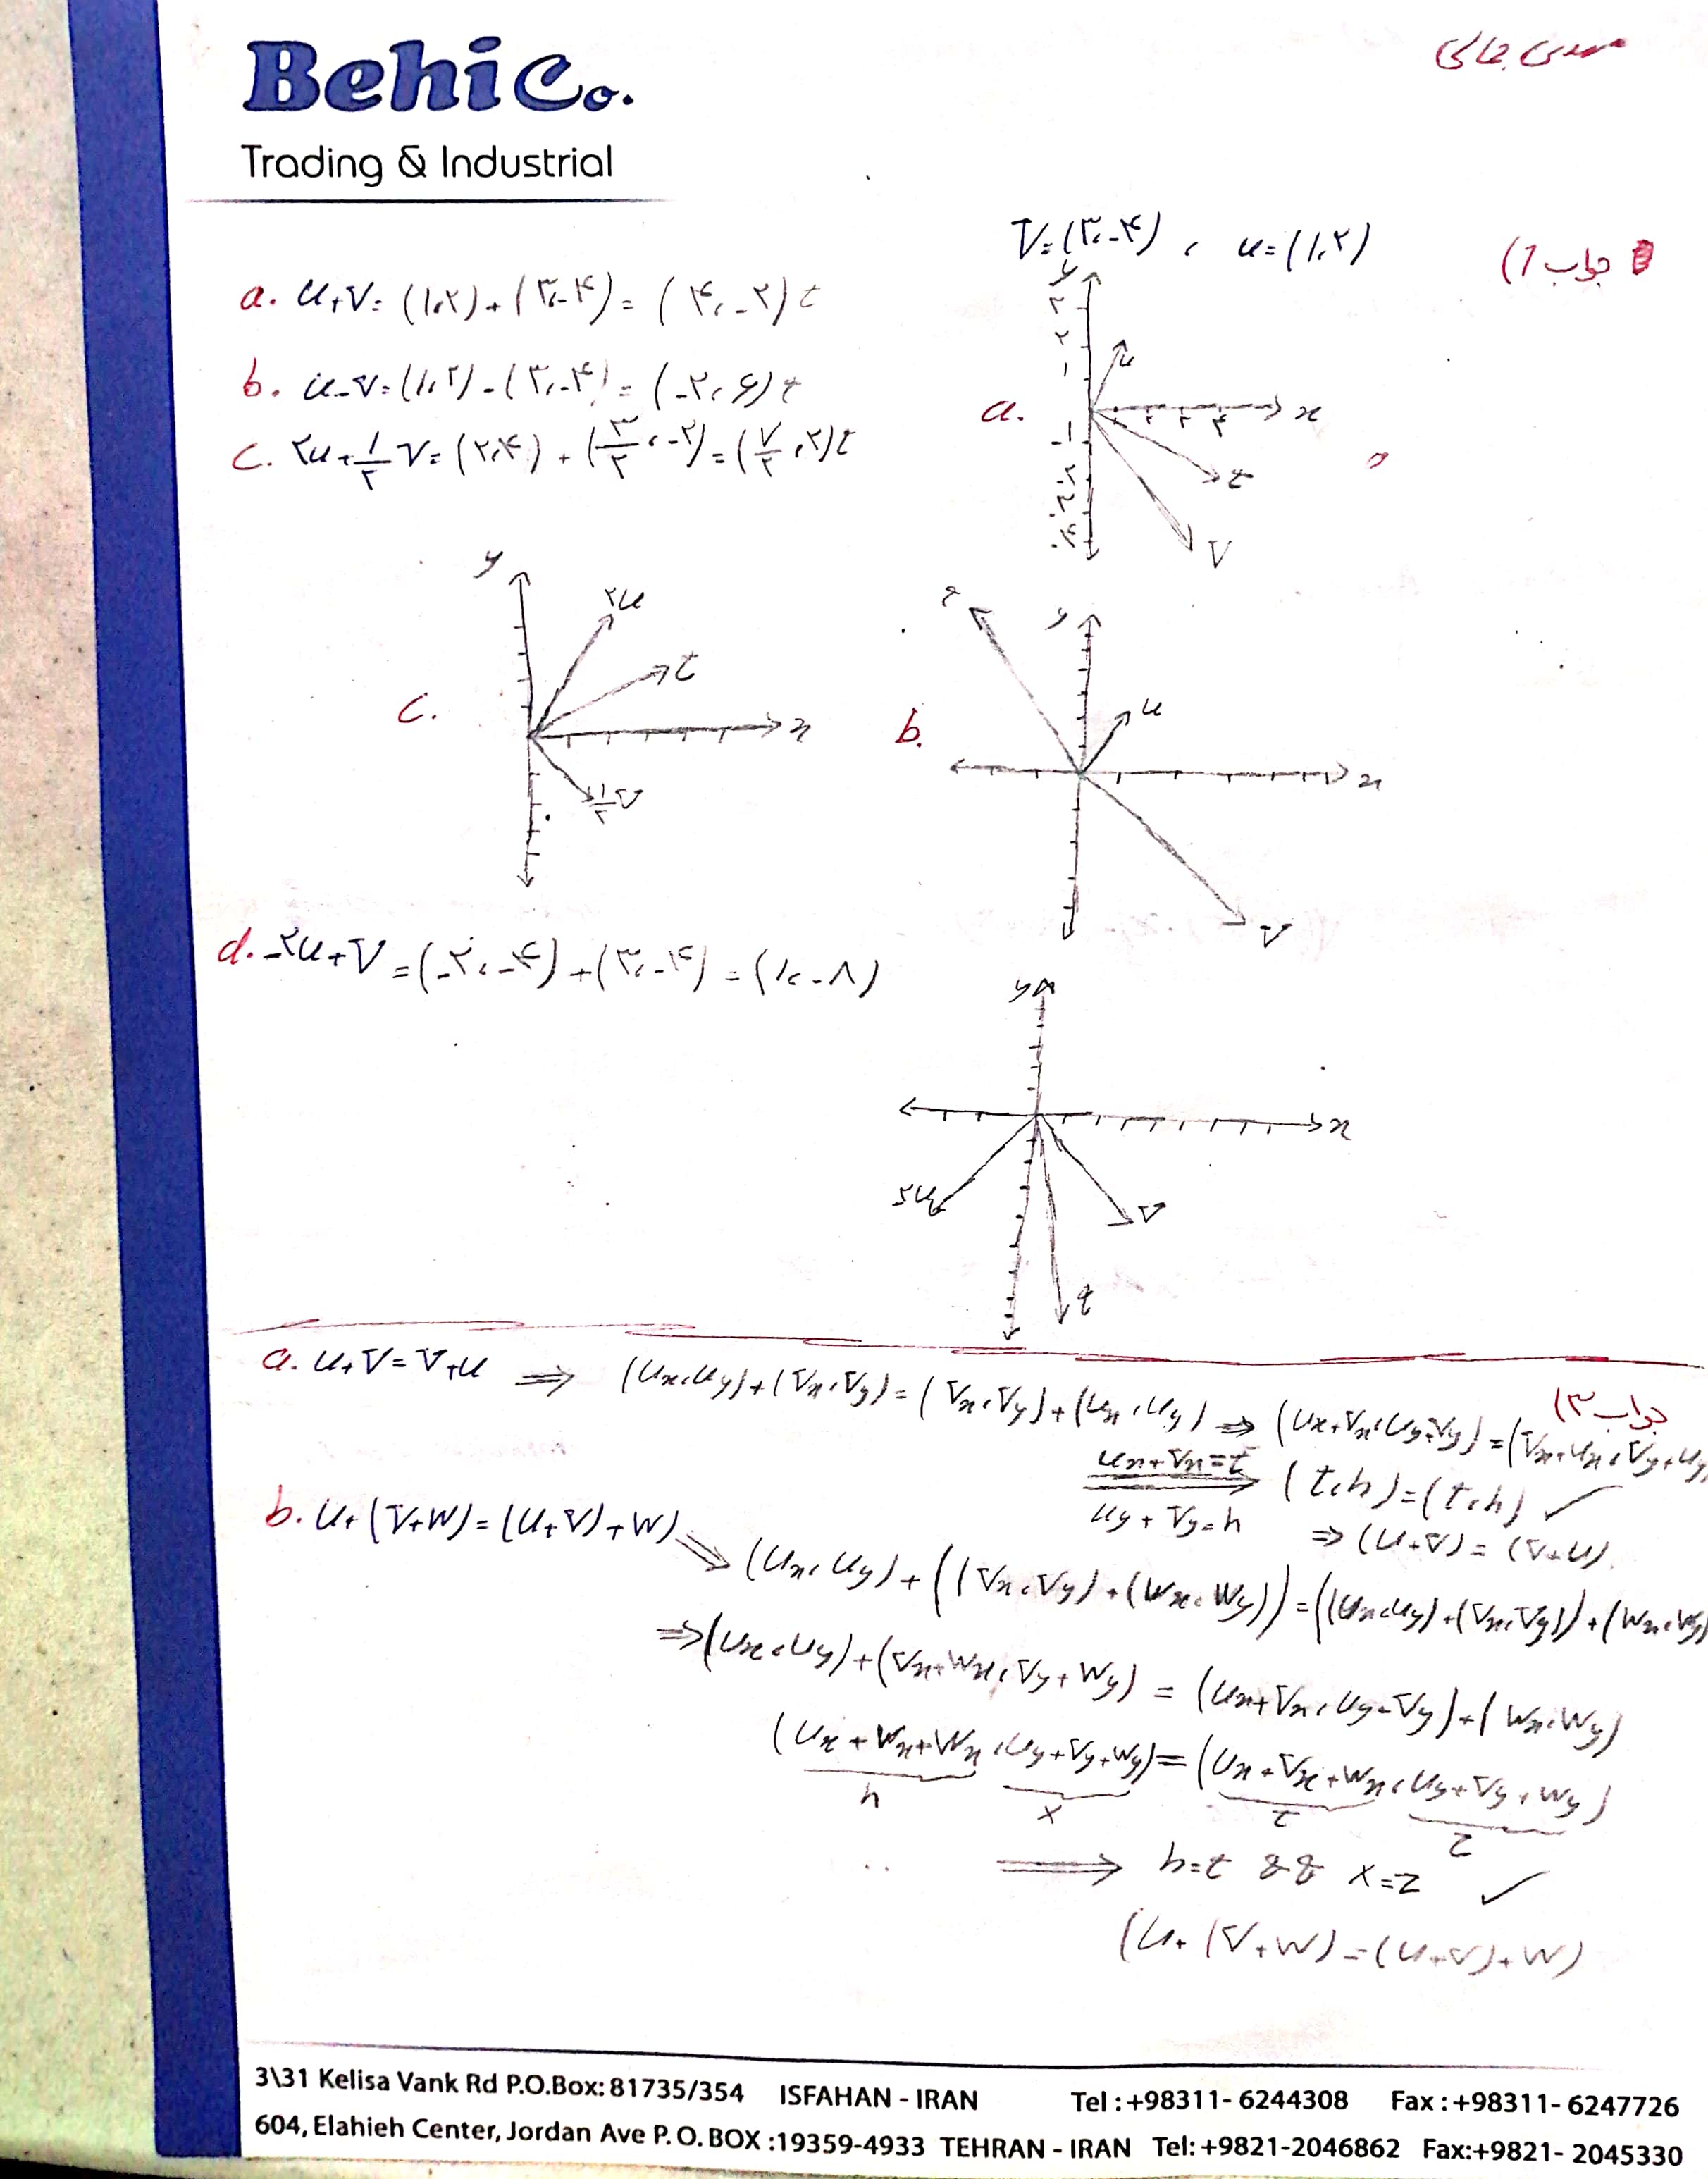 Behi Co.
Trading & Industrial
V=(۳،-۴) ، u=(۱،۲)
جواب 1)
a. u+V= (۱،۲)+(۳،-۴)= (۴،-۲) t
b. u-v=(۱،۲)-(۳،-۴)=(-۲،۶) t
c. ۲u+۱/۲ V=(۲،۴)+(۳/۲،-۲)=(۷/۲،۲) t
a.
y
۳
۲
۱
u
x
۲ ۳ ۴
-۱
t
V
c.
y
۲u
t
x
۱/۲ V
b.
t
y
u
x
V
d. -۲u+V=(-۲،-۴)+(۳،-۴)=(۱،-۸)
y
x
V
t
جواب ۳)
a. u+V=V+u ⇒ (ux،uy)+(Vx،Vy)=(Vx،Vy)+(ux،uy) ⇒ (ux+Vx،uy+Vy)=(Vx+ux،Vy+uy
ux+Vx=t
uy+Vy=h
⇒ (t،h)=(t،h) ✓
⇒ (u+V)=(V+u)
b. u+(V+W)=(u+V)+W)
⇒ (ux،uy)+((Vx،Vy)+(Wx،Wy))=((ux،uy)+(Vx،Vy))+(Wx،Wy)
⇒(ux،uy)+(Vx+Wx،Vy+Wy) = (ux+Vx،uy+Vy)+(Wx،Wy)
(ux+Wx+Wx،uy+Vy+Wy)=(ux+Vx+Wx،uy+Vy+Wy)
h x t z
⇒ h=t && x=z ✓
(u+(V+W)=(u+V)+W)
3\31 Kelisa Vank Rd P.O.Box: 81735/354 ISFAHAN - IRAN Tel : +98311- 6244308 Fax : +98311- 6247726
604, Elahieh Center, Jordan Ave P. O. BOX :19359-4933 TEHRAN - IRAN Tel: +9821-2046862 Fax:+9821- 2045330